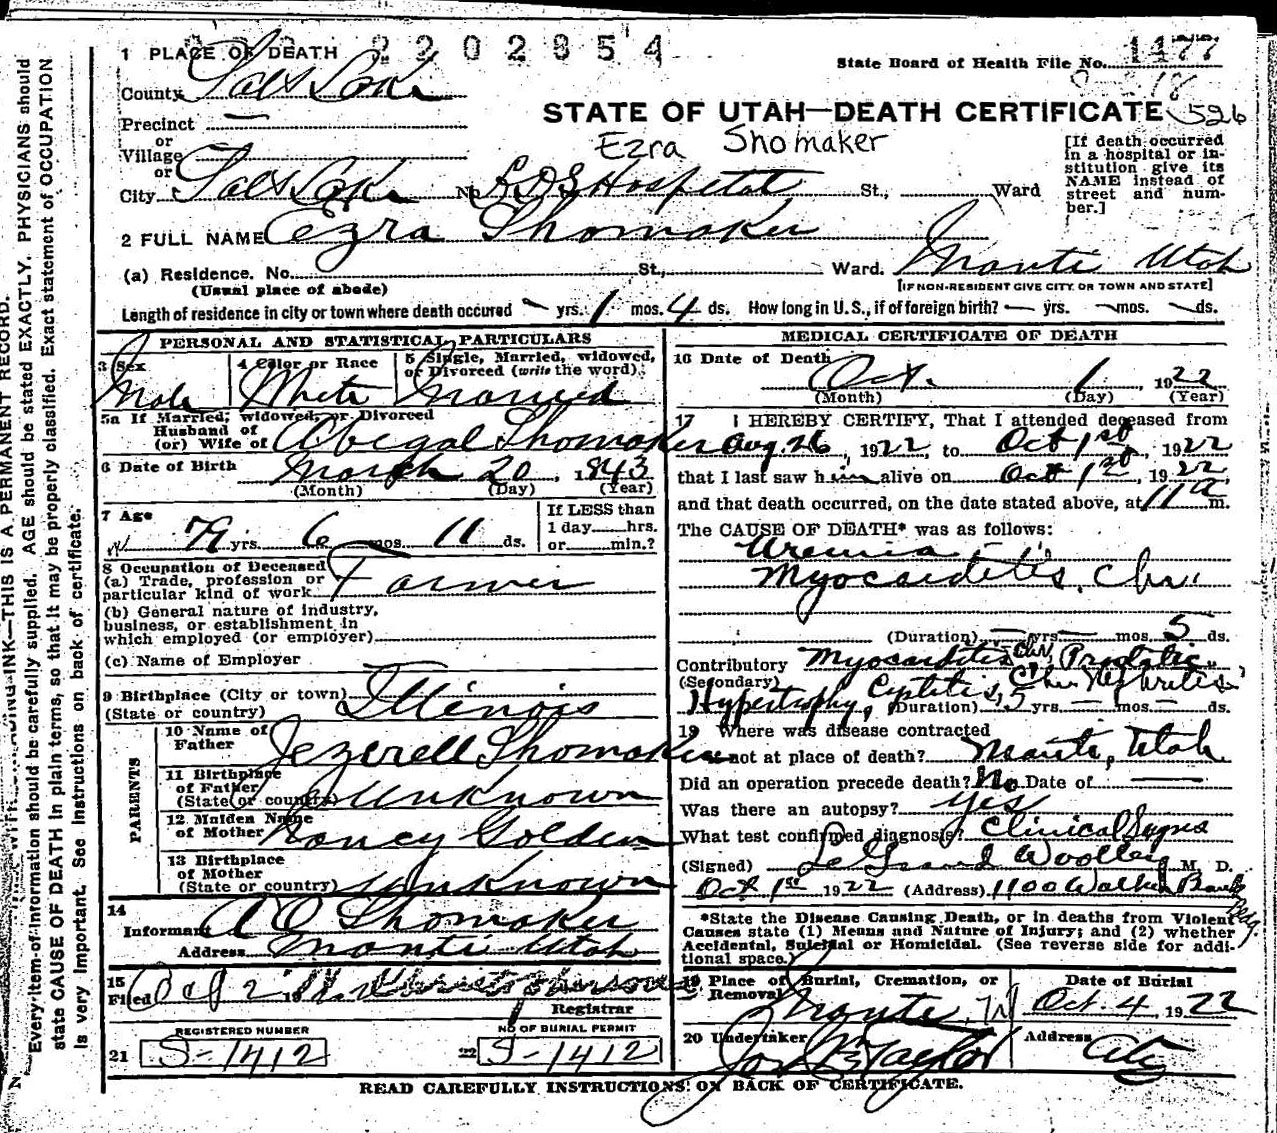 2202854
1 PLACE OF DEATH
State Board of Health File No. 1477
18
526
County Salt Lake
STATE OF UTAH—DEATH CERTIFICATE
Precinct —
or
Village
or
Ezra Shomaker
[If death occurred in a hospital or institution give its NAME instead of street and number.]
City Salt Lake No. L.D.S. Hospital St., Ward
2 FULL NAME Ezra Shomaker
(a) Residence. No. St., Ward. Manti Utah
(Usual place of abode) [IF NON-RESIDENT GIVE CITY OR TOWN AND STATE]
Length of residence in city or town where death occured — yrs. 1 mos. 4 ds. How long in U.S., if of foreign birth? — yrs. — mos. — ds.
PERSONAL AND STATISTICAL PARTICULARS
3 Sex Male
4 Color or Race White
5 Single, Married, widowed, or Divorced (write the word) Married
5a If Married, widowed, or Divorced
Husband of
(or) Wife of Abegal Shomaker
6 Date of Birth March 20, 1843
(Month) (Day) (Year)
7 Age 79 yrs. 6 mos. 11 ds.
If LESS than
1 day hrs.
or min.?
8 Occupation of Deceased
(a) Trade, profession or
particular kind of work Farmer
(b) General nature of industry,
business, or establishment in
which employed (or employer)
(c) Name of Employer
9 Birthplace (City or town)
(State or country) Illinois
PARENTS
10 Name of Father Jezerell Shomaker
11 Birthplace of Father (State or country) Unknown
12 Maiden Name of Mother Nancy Golden
13 Birthplace of Mother (State or country) Unknown
14
Informant A O Shomaker
Address Manti Utah
15
Filed Oct 2 19
Registrar
REGISTERED NUMBER
21 S-1412
NO OF BURIAL PERMIT
22 S-1412
MEDICAL CERTIFICATE OF DEATH
16 Date of Death Oct. 1, 1922
(Month) (Day) (Year)
17 I HEREBY CERTIFY, That I attended deceased from
Aug. 26, 1922, to Oct 1st, 1922
that I last saw him alive on Oct 1st, 1922,
and that death occurred, on the date stated above, at 11 a m.
The CAUSE OF DEATH* was as follows:
Uremia,
Myocarditis, Chr.
(Duration) — yrs. — mos. 5 ds.
Contributory Myocarditis Chr, Prostatic
(Secondary)
Hypertrophy, Cystitis, Chr Nephritis
(Duration) 15 yrs. — mos. — ds.
19 Where was disease contracted
if not at place of death? Manti, Utah
Did an operation precede death? No Date of —
Was there an autopsy? yes
What test confirmed diagnosis? Clinical Signs
(Signed) LeGrand Woolley M. D.
Oct 1st 1922 (Address) 1100 Walker Bank Bldg
*State the Disease Causing Death, or in deaths from Violent
Causes state (1) Means and Nature of Injury; and (2) whether
Accidental, Suicidal or Homicidal. (See reverse side for additional space.)
19 Place of Burial, Cremation, or Removal Manti,
Date of Burial
Oct. 4, 1922
20 Undertaker Taylor
Address City
READ CAREFULLY INSTRUCTIONS ON BACK OF CERTIFICATE.
INK—THIS IS A PERMANENT RECORD.
Every item of information should be carefully supplied. AGE should be stated EXACTLY. PHYSICIANS should
state CAUSE OF DEATH in plain terms, so that it may be properly classified. Exact statement of OCCUPATION
is very important. See instructions on back of certificate.